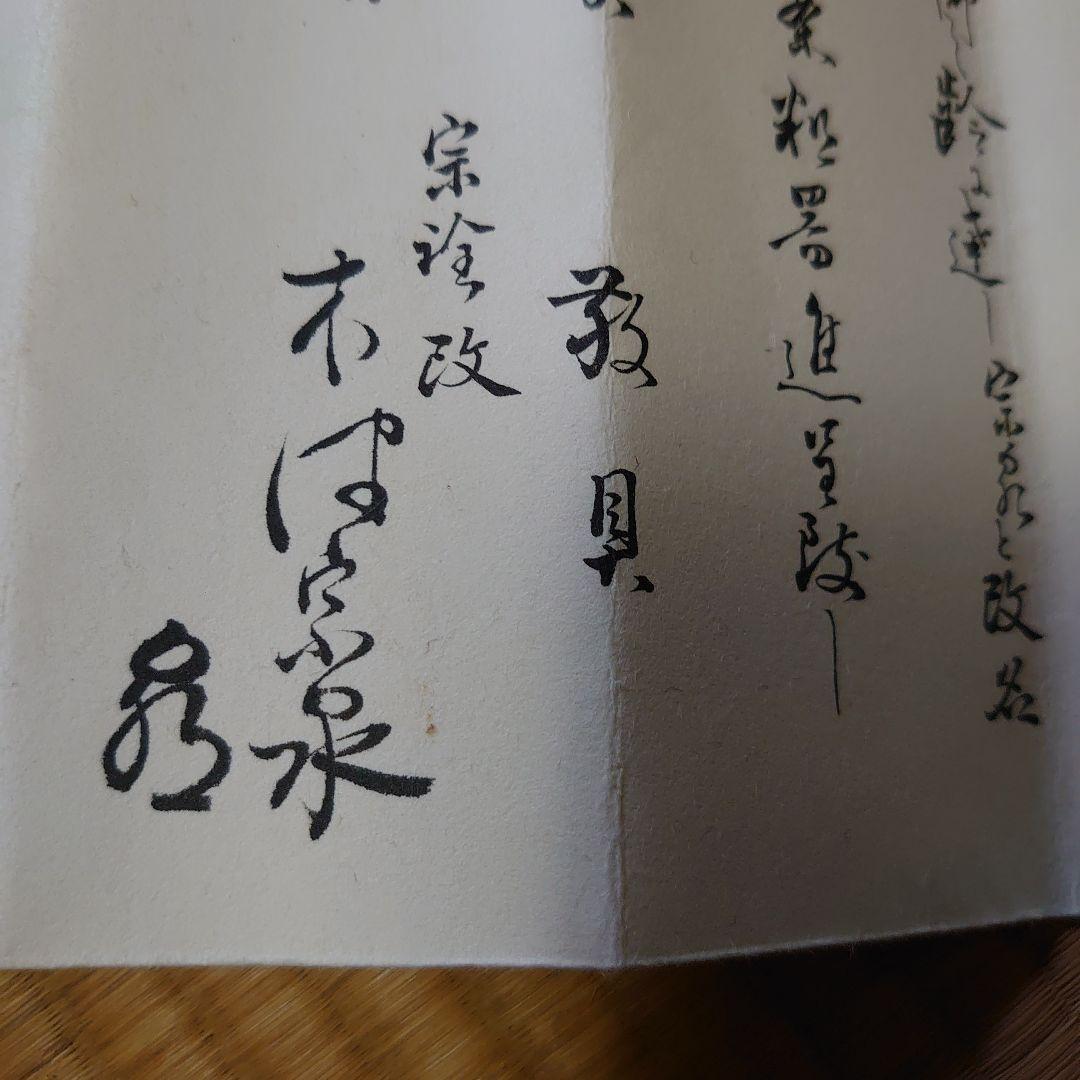 齢に達し宗泉と改名
粗器進呈致し
敬具
宗詮改
木津宗泉